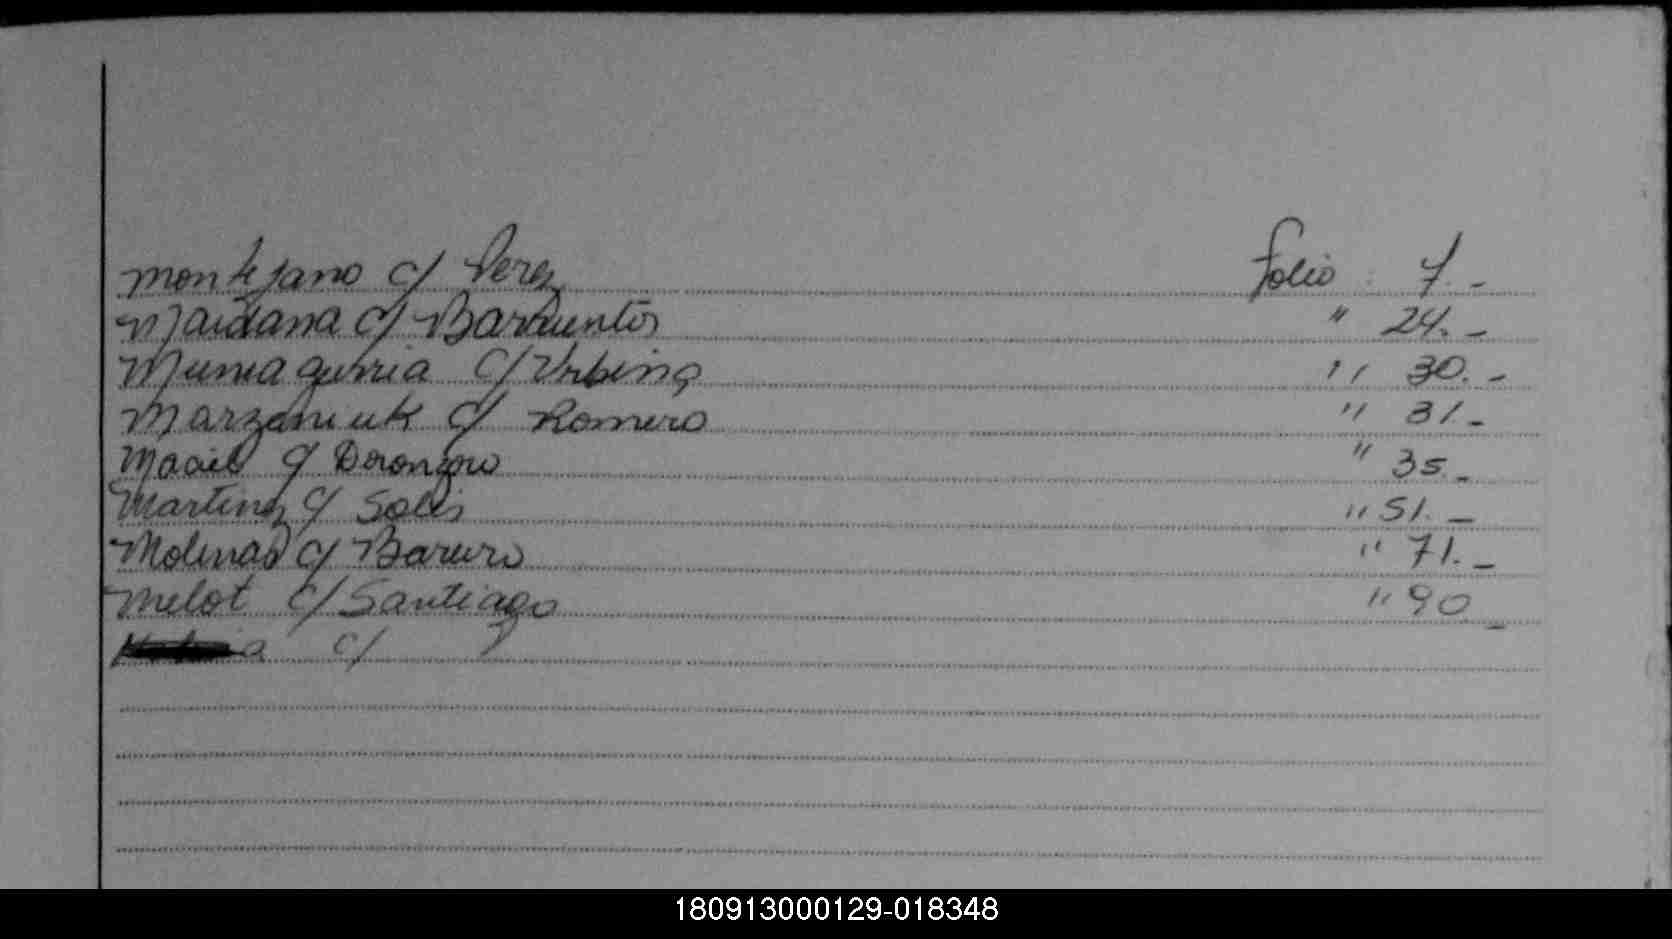 Montejano c/ Perez folio 7.-
Maidana c/ Barrientos " 24.-
Mumagurria c/ Urbina " 30.-
Marzaniuk c/ Romero " 31.-
Maciel c/ " 35.-
Martinez c/ Solis " 51.-
Molinas c/ " 71.-
Melot c/ Santiago " 90.-
c/
180913000129-018348